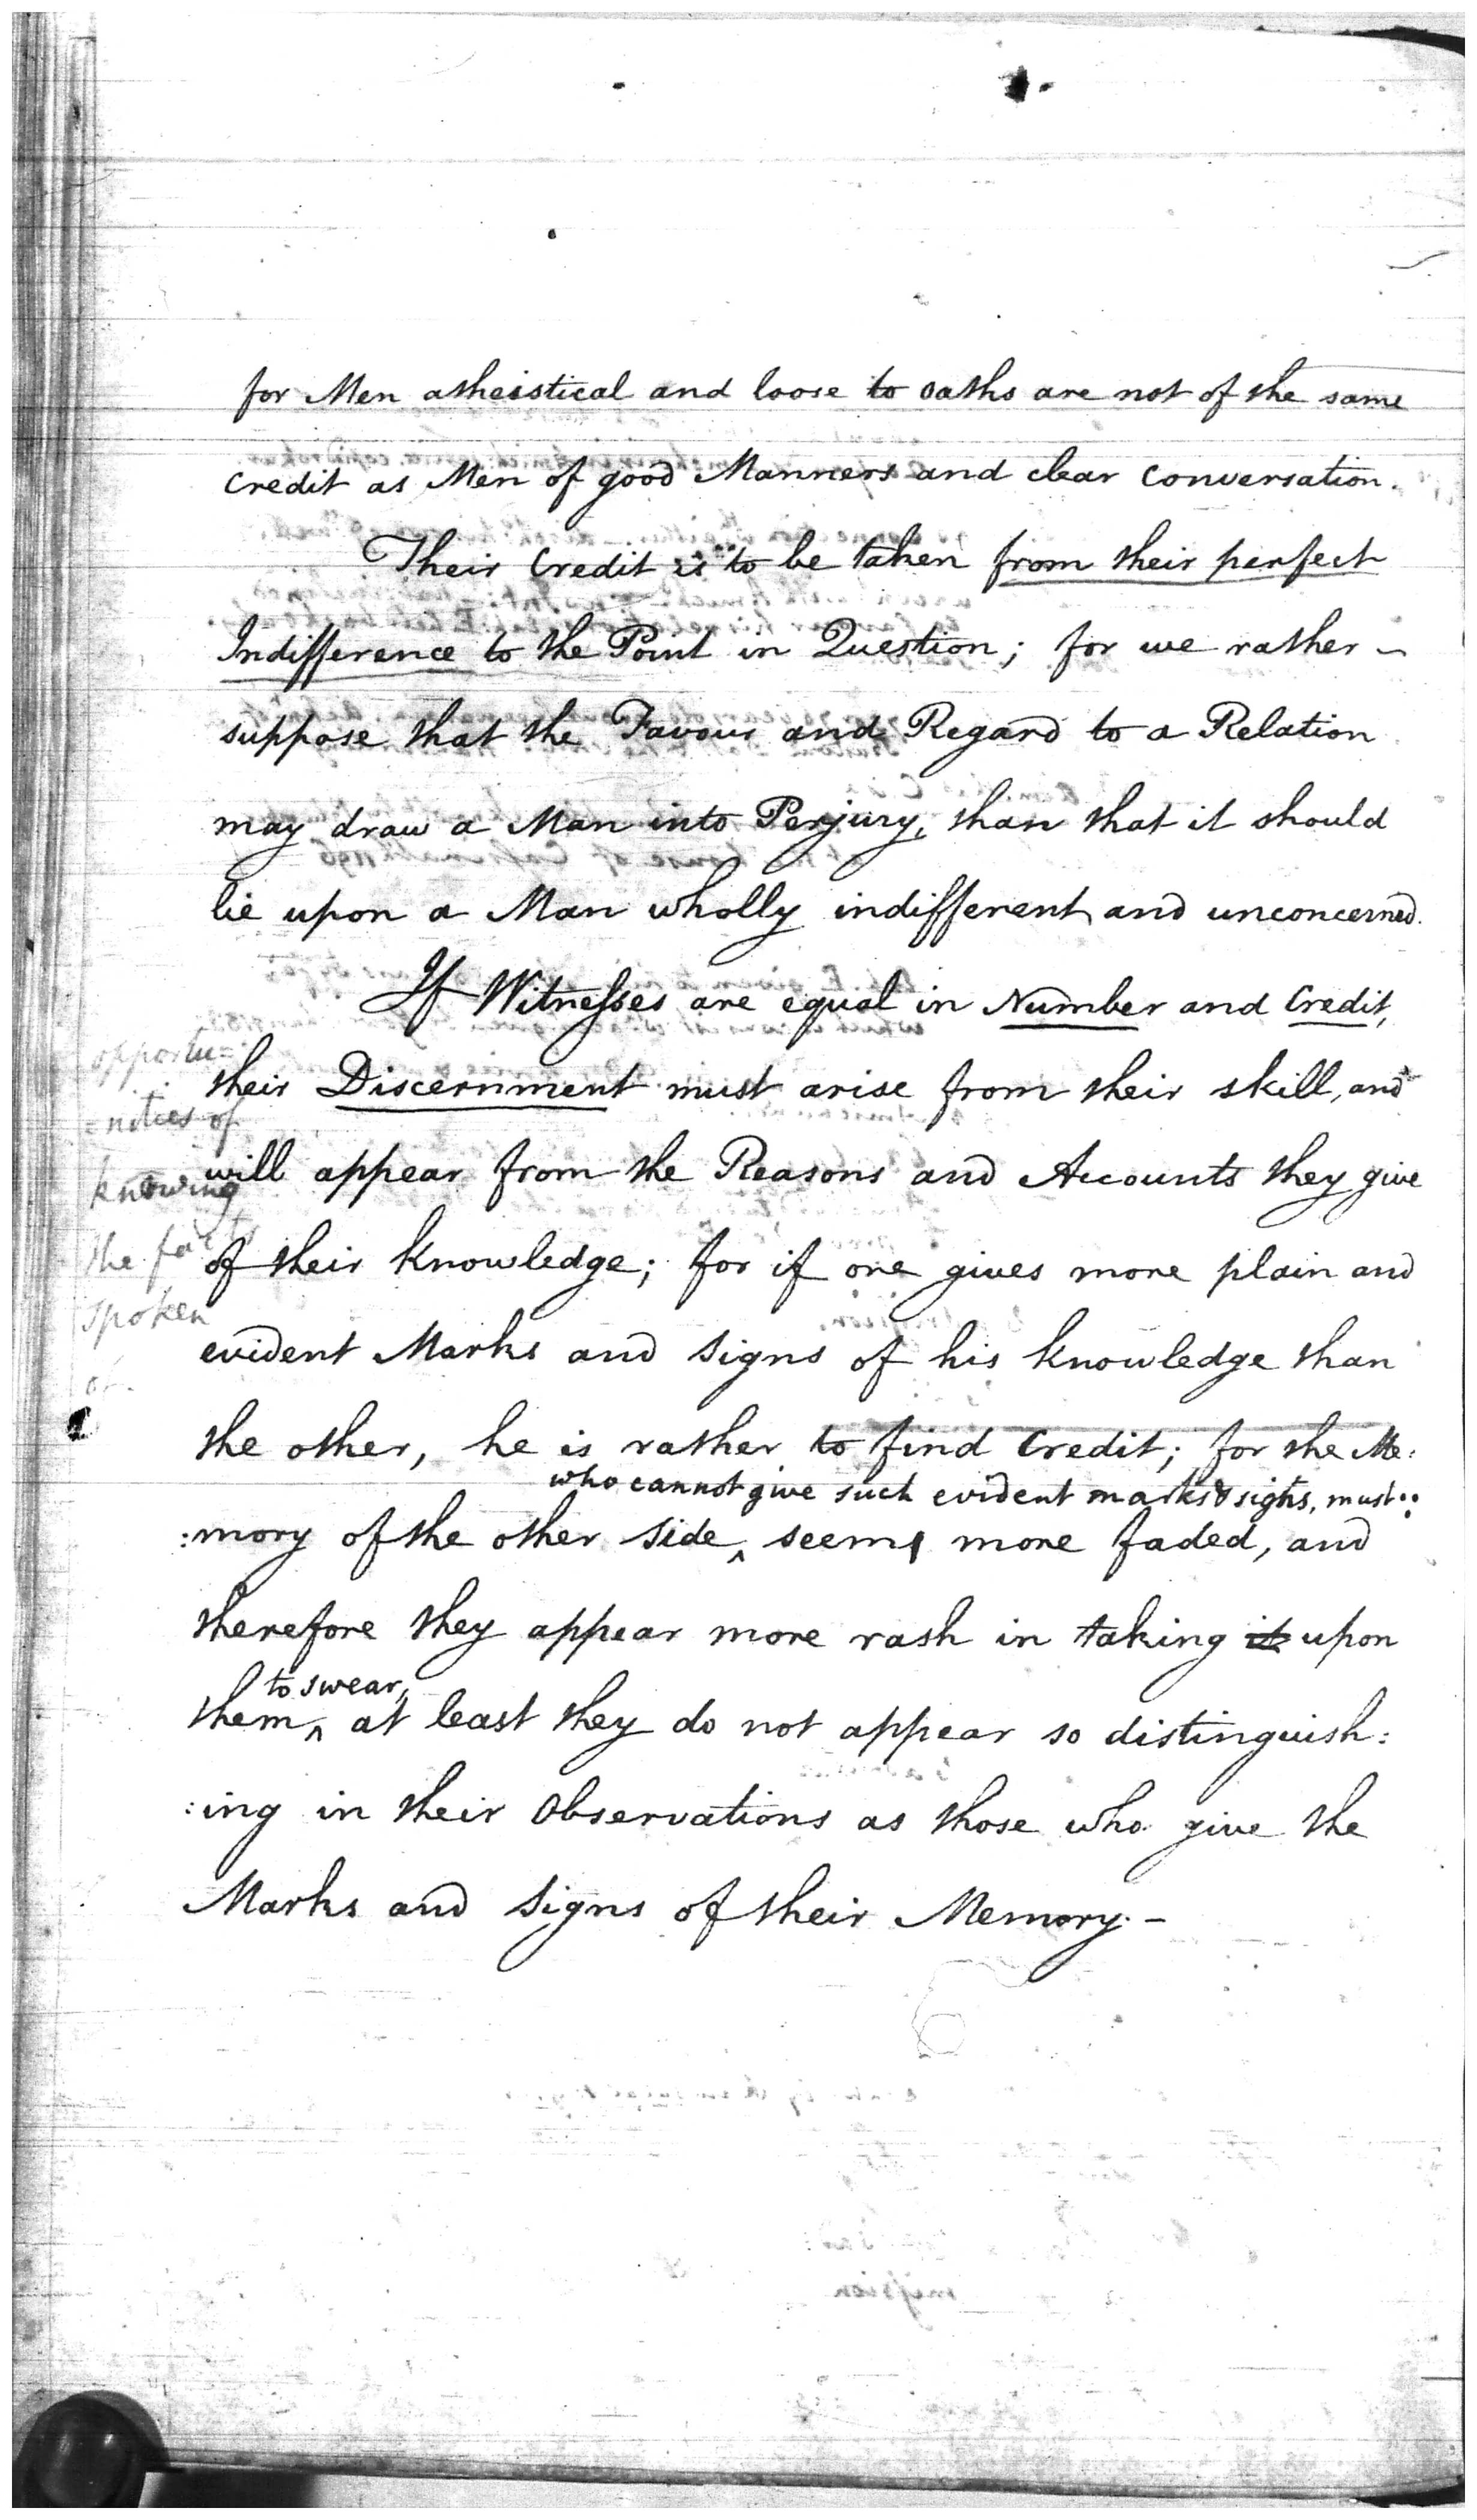 for Men atheistical and loose to oaths are not of the same
Credit as Men of good Manners and clear Conversation.
Their Credit is to be taken from their perfect
Indifference to the Point in Question; for we rather –
suppose that the Favour and Regard to a Relation
may draw a Man into Perjury, than that it should
lie upon a Man wholly indifferent and unconcerned.
If Witnesses are equal in Number and Credit,
their Discernment must arise from their skill, and
will appear from the Reasons and Accounts they give
of their Knowledge; for if one gives more plain and
evident Marks and Signs of his Knowledge than
the other, he is rather to find Credit; for the Me:
who cannot give such evident marks & signs, must
:mory of the other Side ‸ seem more faded, and
therefore they appear more rash in taking it upon
to swear,
them ‸ at least they do not appear so distinguish:
:ing in their Observations as those who give the
Marks and Signs of their Memory. –
opportu=
=nities of
knowing
the facts
spoken
of.